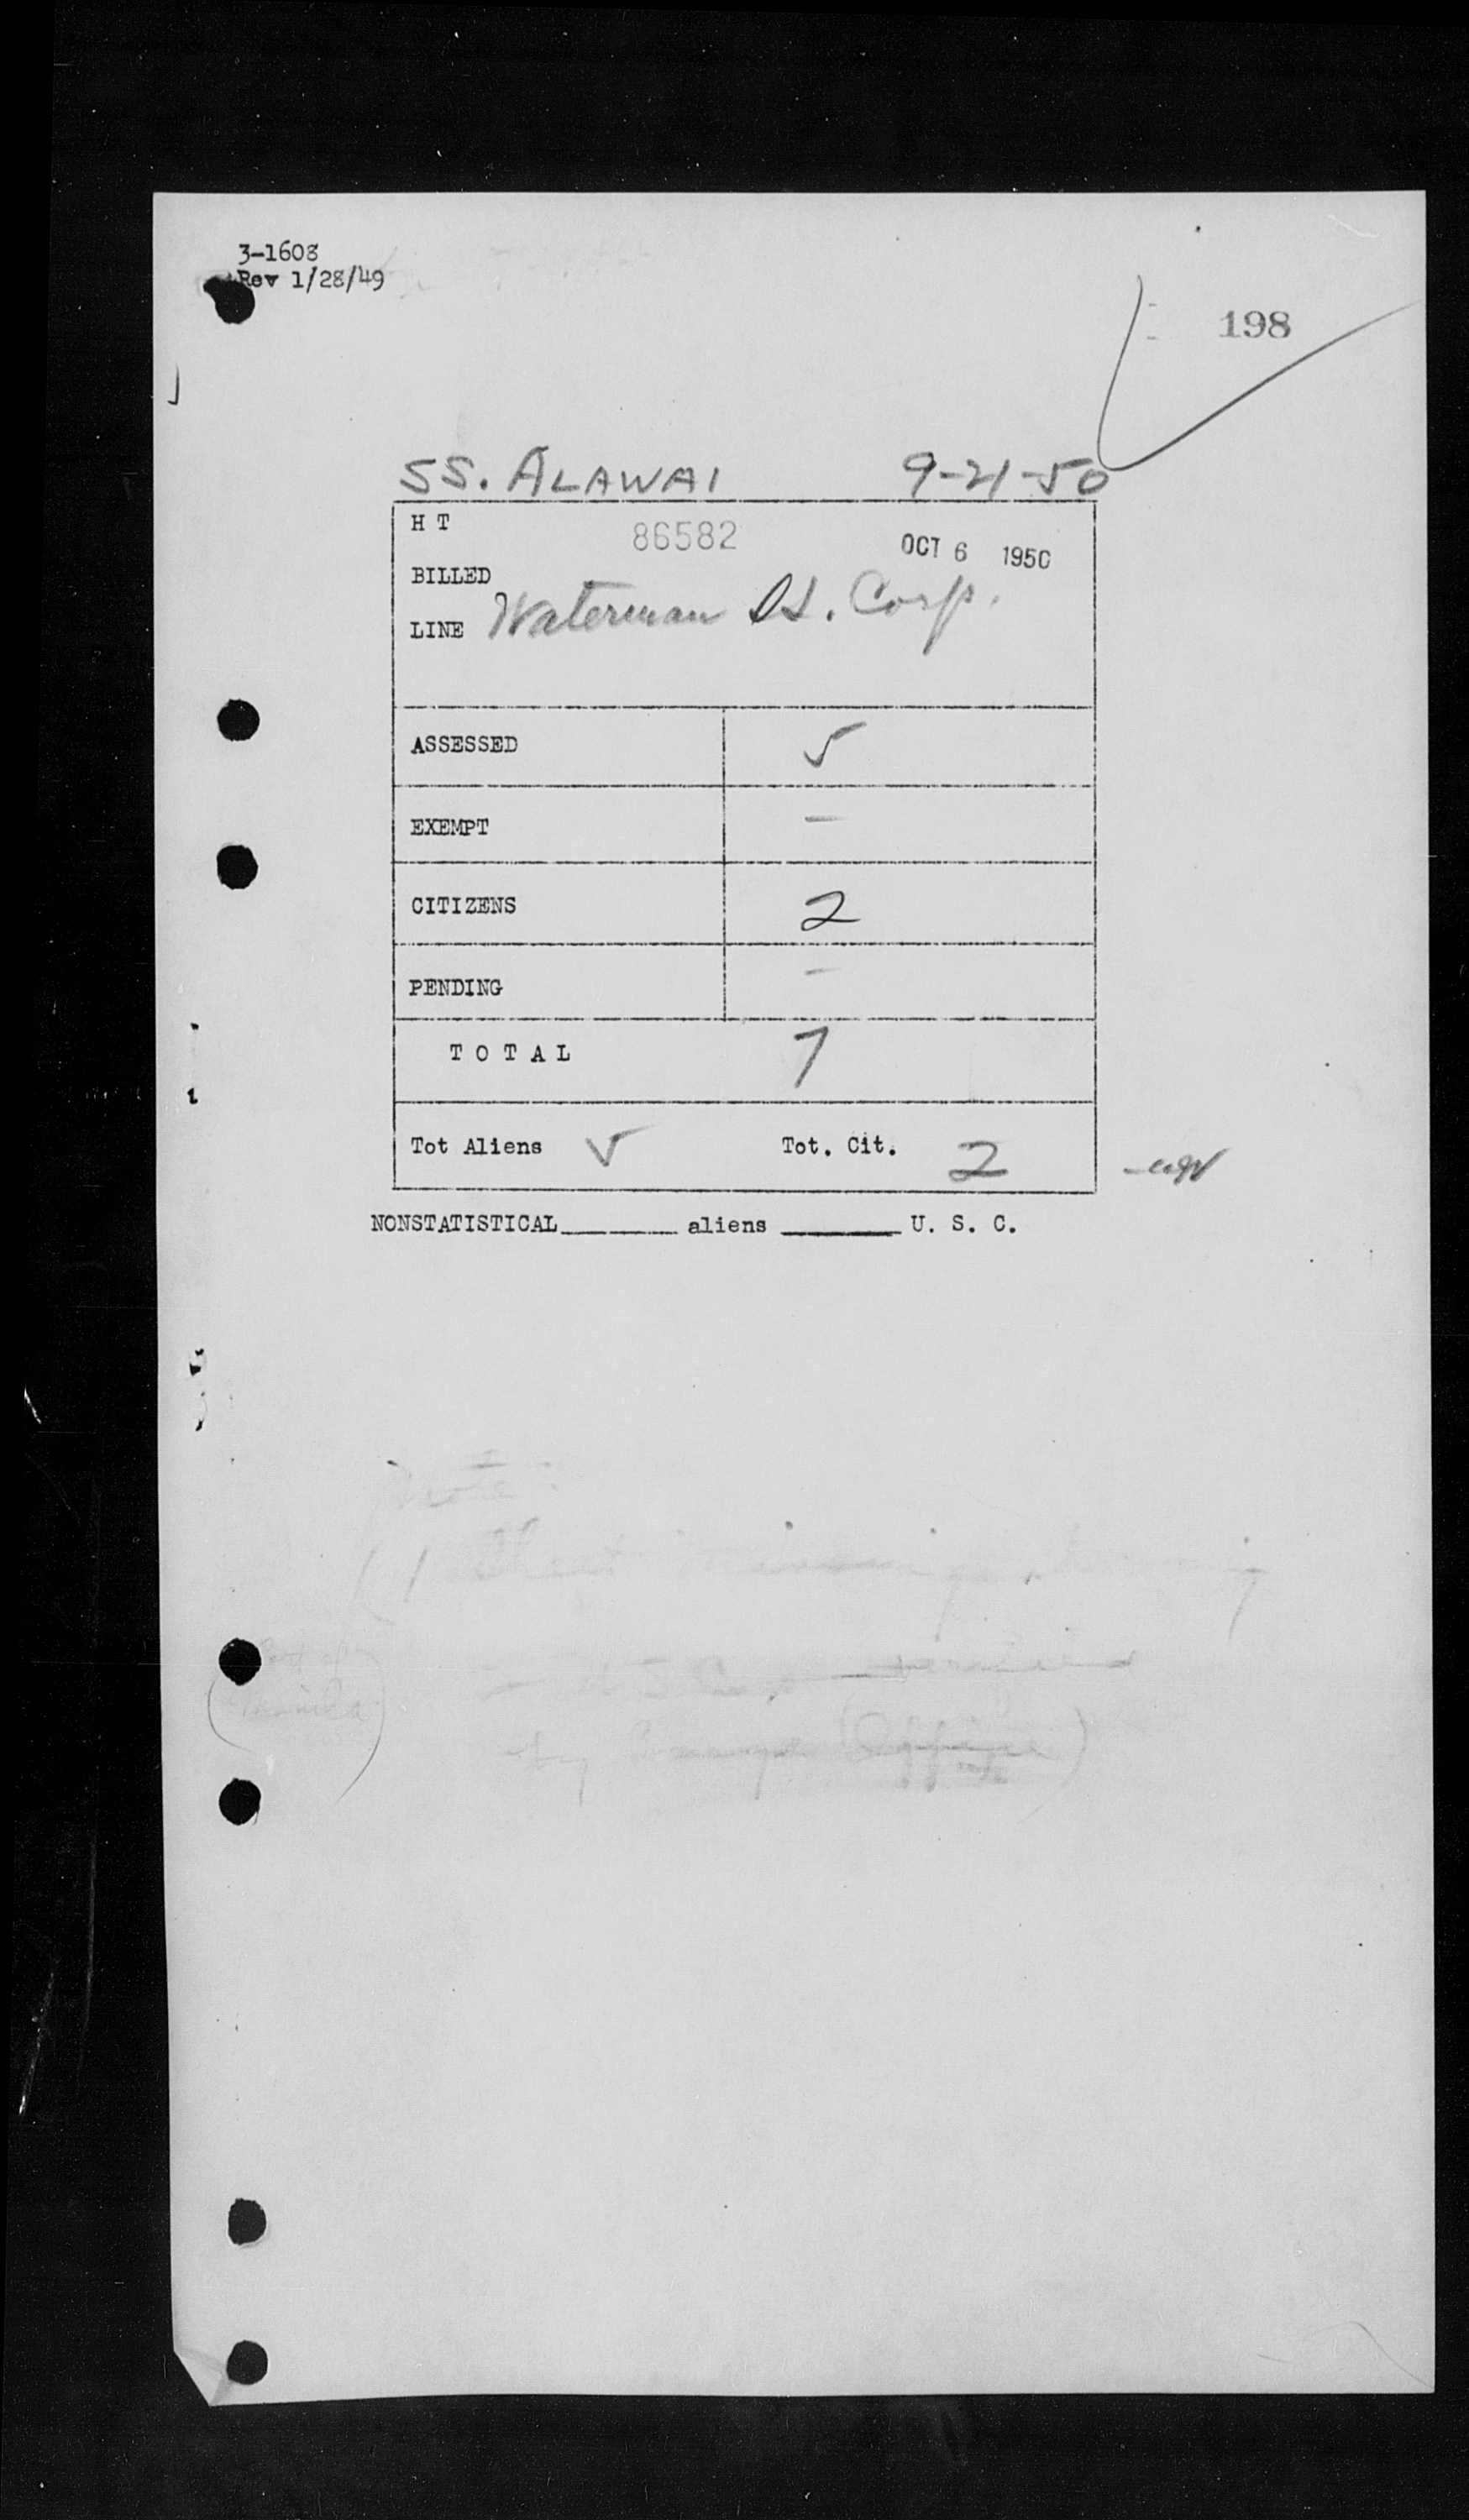 3-1608
Rev 1/28/49
198
SS. ALAWAI 9-21-50
H T 86582 OCT 6 1950
BILLED
LINE Waterman SS. Corp.
ASSESSED 5
EXEMPT –
CITIZENS 2
PENDING –
T O T A L 7
Tot Aliens 5 Tot. Cit. 2
NONSTATISTICAL______ aliens ______ U. S. C.